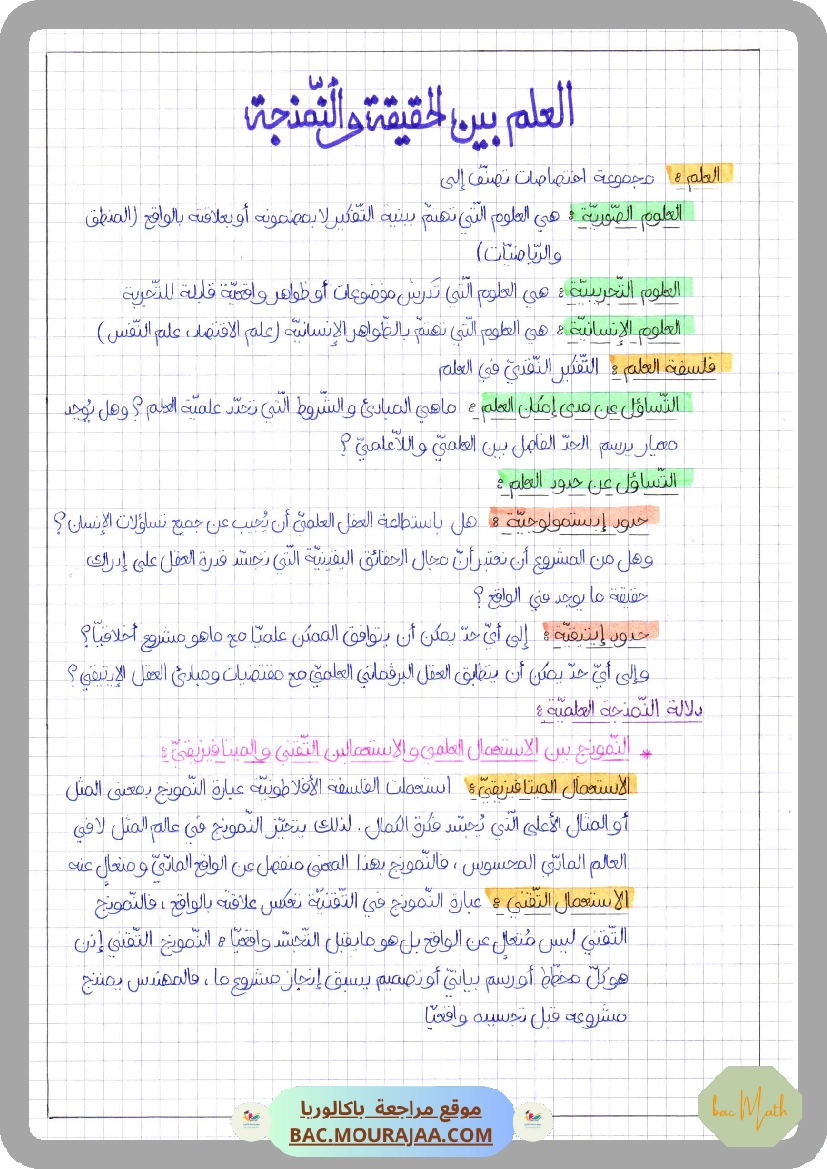 العلم بين الحقيقة والنّمذجة
العلم : مجموعة اختصاصات تصنّف إلى
العلوم الصّوريّة : هي العلوم الّتي تهتمّ ببنية التّفكير لا بمضمونه أو بعلاقته بالواقع (المنطق
والرّياضيّات)
العلوم التّجريبيّة : هي العلوم الّتي تدرس موضوعات أو ظواهر واقعيّة قابلة للتّجربة
العلوم الإنسانيّة : هي العلوم الّتي تهتمّ بالظّواهر الإنسانيّة (علم الاقتصاد، علم النّفس)
فلسفة العلم : التّفكير النّقديّ في العلم
التّساؤل عن مدى إمكان العلم : ماهي المبادئ والشّروط الّتي تحدّد علميّة العلم ؟ وهل يُوجد
معيار يرسم الحدّ الفاصل بين العلميّ واللّاعلميّ ؟
التّساؤل عن حدود العلم :
حدود إبستمولوجيّة : هل باستطاعة العقل العلميّ أن يُجيب عن جميع تساؤلات الإنسان ؟
وهل من المشروع أن نعتبر أنّ مجال الحقائق اليقينيّة الّتي تجسّد قدرة العقل على إدراك
حقيقة ما يوجد في الواقع ؟
حدود إيتيقيّة : إلى أيّ حدّ يمكن أن يتوافق الممكن علميّا مع ماهو مشروع أخلاقيّا؟
وإلى أيّ حدّ يمكن أن يتطابق العقل البرڤماتي العلميّ مع مقتضيات ومبادئ العقل الإيتيقي ؟
دلالة النّمذجة العلميّة :
* النّموذج بين الاستعمال العلمي والاستعمالين التّقني والميتافيزيقيّ :
الاستعمال الميتافيزيقيّ : استعملت الفلسفة الأفلاطونيّة عبارة النّموذج بمعنى المثل
أو المثال الأعلى الّتي يُجسّد فكرة الكمال . لذلك يتحيّز النّموذج في عالم المثل لا في
العالم المادّي المحسوس ، فالنّموذج بهذا المعنى منفصل عن الواقع المادّيّ ومتعالٍ عنه
الاستعمال التّقني : عبارة النّموذج في التّقنيّة تعكس علاقته بالواقع ، فالنّموذج
التّقني ليس مُتعالٍ عن الواقع بل هو ما يقبل التّجسّد واقعيّا : النّموذج التّقني إذن
هو كلّ مخطّط أو رسم بيانيّ أو تصميم يسبق إنجاز مشروع ما ، فالمهندس يمنذج
مشروعه قبل تجسيده واقعيّا
موقع مراجعة باكالوريا
BAC.MOURAJAA.COM
bac Math